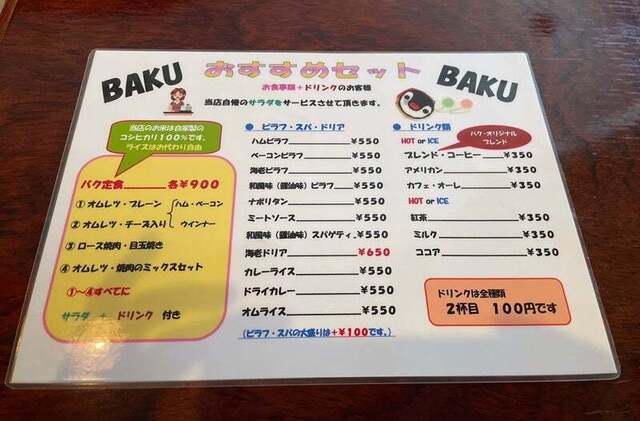 BAKU おすすめセット BAKU
お食事類+ドリンクのお客様
当店自慢のサラダをサービスさせて頂きます。
当店のお米は自家製の
コシヒカリ100%です。
ライスはお代わり自由
バク定食 各¥900
①オムレツ・プレーン
②オムレツ・チーズ入り
ハム・ベーコン
ウインナー
③ロース焼肉・目玉焼き
④オムレツ・焼肉のミックスセット
①～④すべてに
サラダ + ドリンク 付き
● ピラフ・スパ・ドリア
ハムピラフ ¥550
ベーコンピラフ ¥550
海老ピラフ ¥550
和風味(醤油味)ピラフ ¥550
ナポリタン ¥550
ミートソース ¥550
和風味(醤油味)スパゲティ ¥550
海老ドリア ¥650
カレーライス ¥550
ドライカレー ¥550
オムライス ¥550
(ピラフ・スパの大盛りは+¥100です。)
● ドリンク類
HOT or ICE
バク・オリジナル
ブレンド
ブレンド・コーヒー ¥350
アメリカン ¥350
カフェ・オーレ ¥350
HOT or ICE
紅茶 ¥350
ミルク ¥350
ココア ¥350
ドリンクは全種類
2杯目 100円です